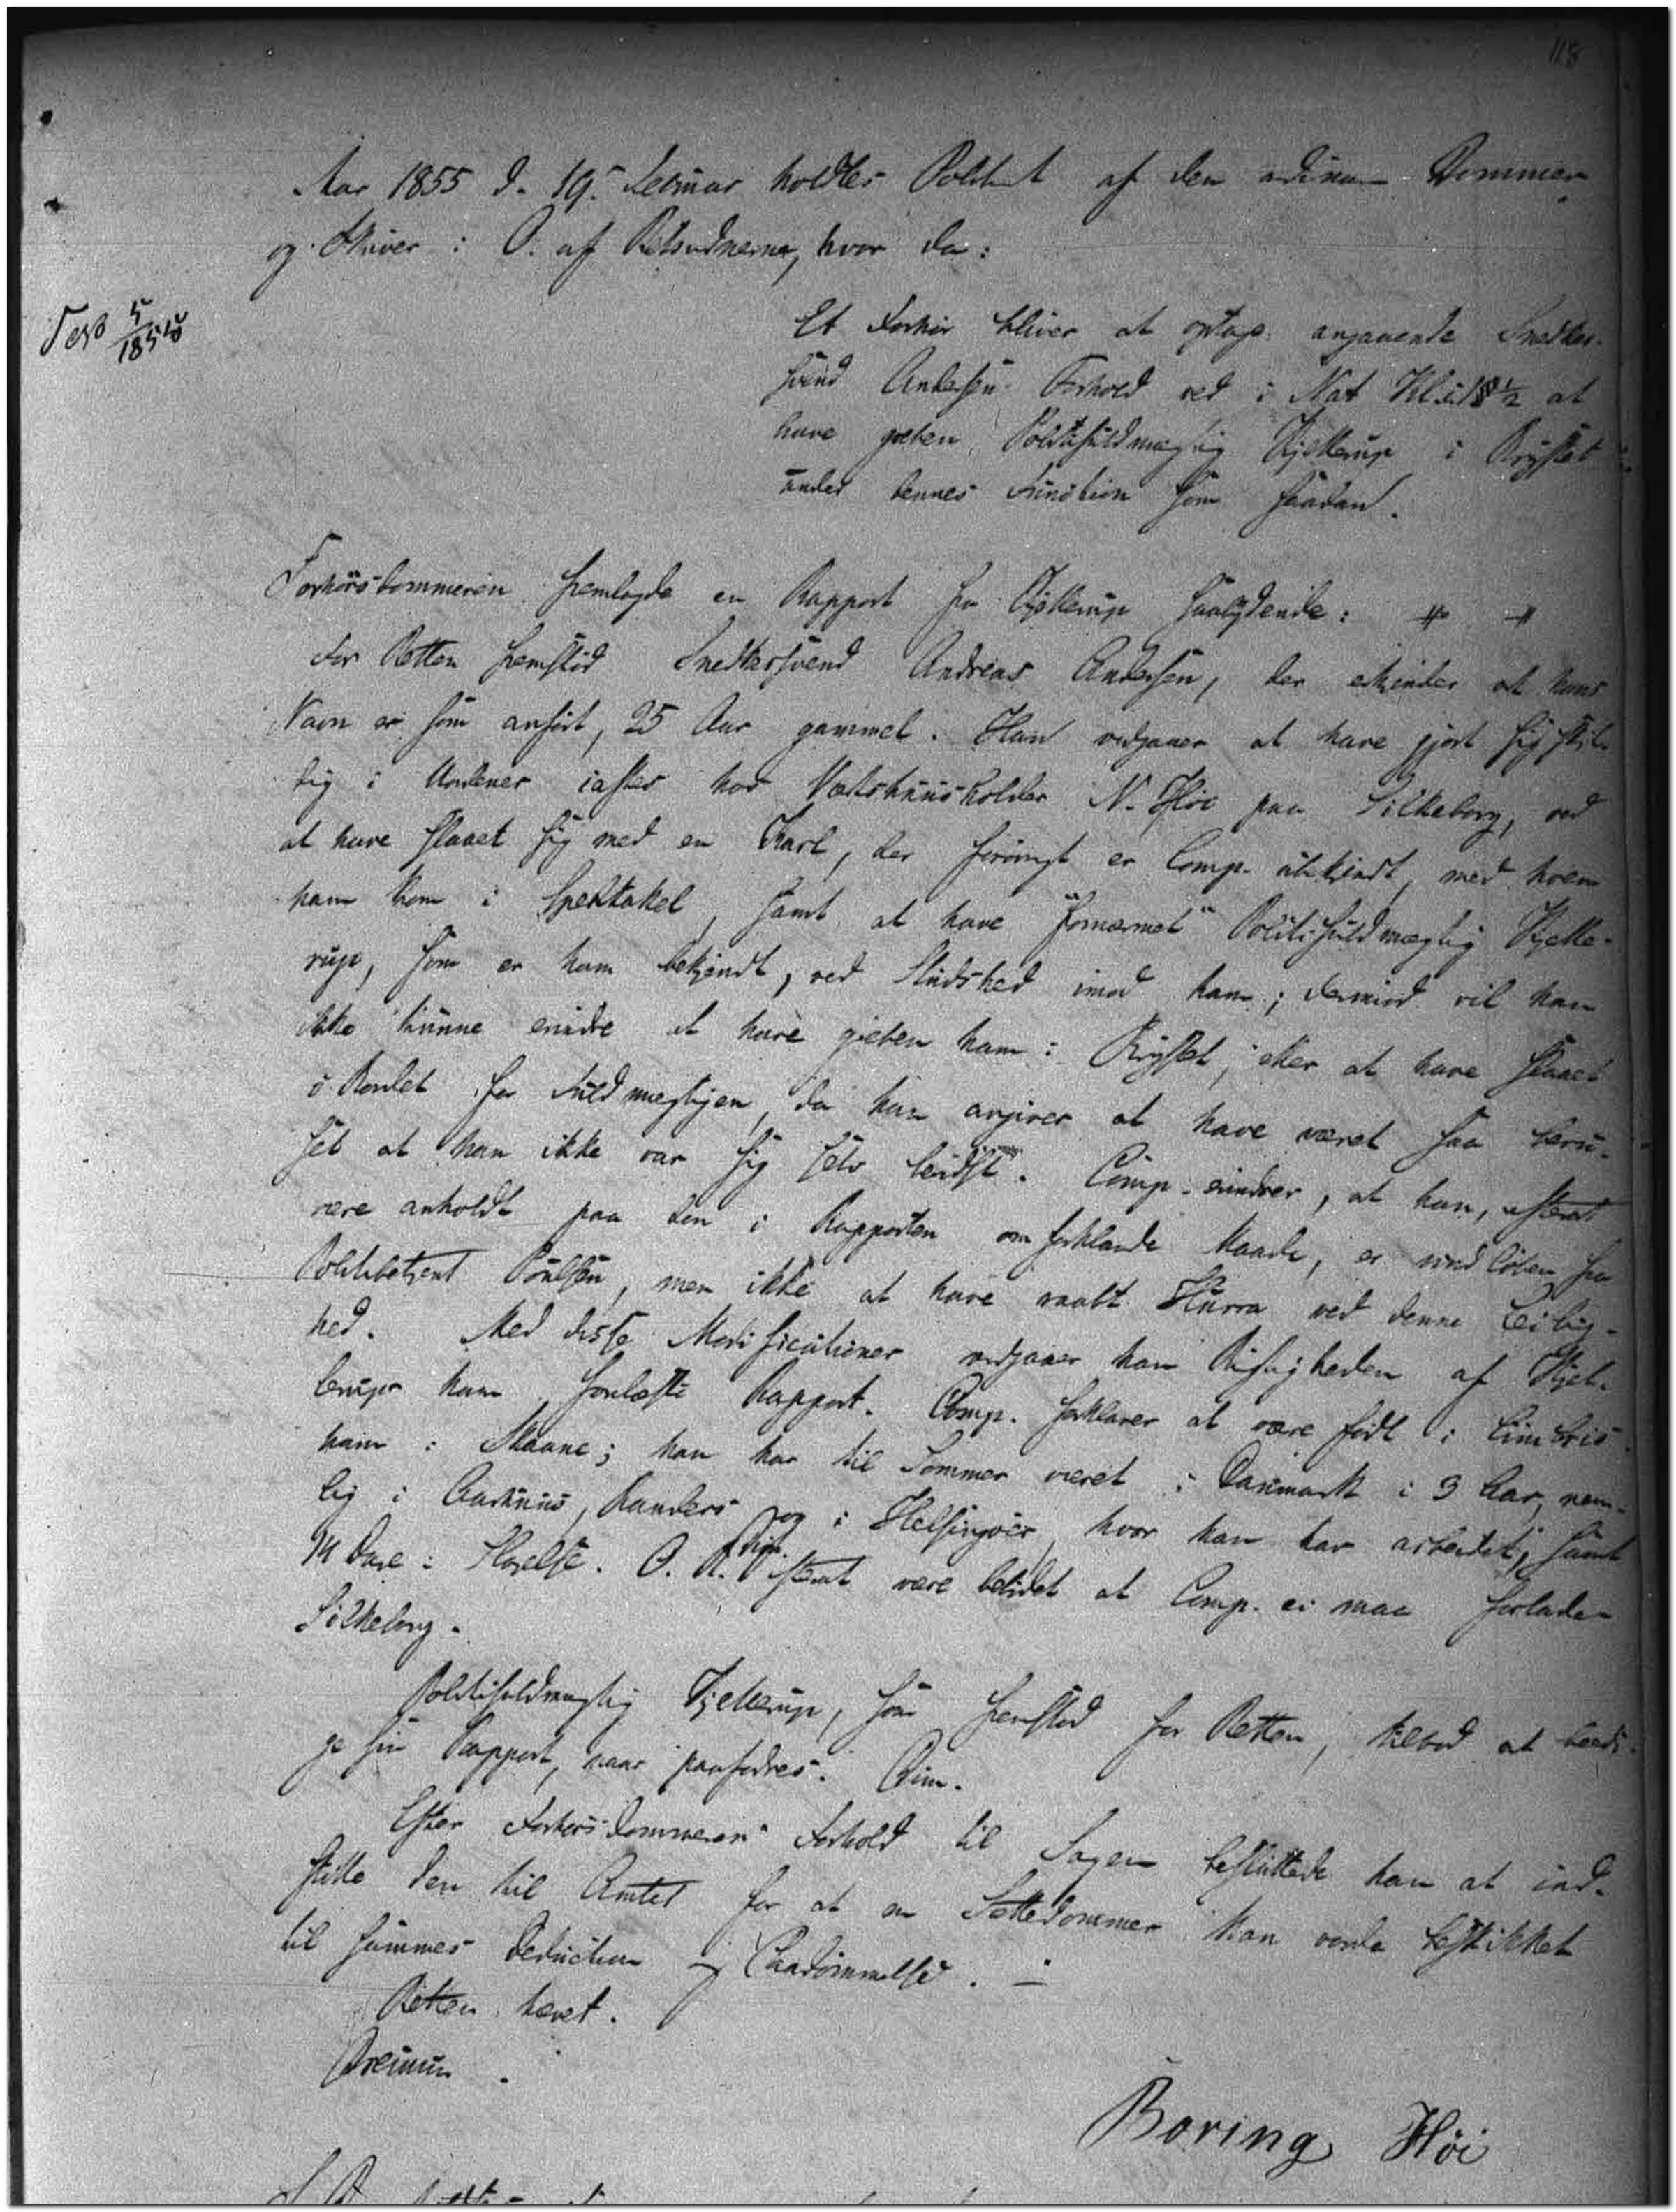 118
Aar 1855 d. 19. Februar holdtes Politiret af den ordinære Dommer
og Skriver i O. af Retsvidnerne, hvor da:
5/1855
Et Forhör bliver at optage angaaende Snedker-
svend Andersens Forhold ved i Nat Kl. 1½ at
have grebet Politifuldmægtig Kjellerup i Brystet
under dennes Function som saadan.
Forhörsdommeren fremlagde en Rapport fra Kjellerup saalydende: # #
For Retten fremstod Snedkersvend Andreas Andersen, der erkjender at hans
Navn er som anfört, 25 Aar gammel. Han vedgaaer at have gjort sig skyl-
dig i Uordener iaftes hos Værtshuusholder N. Höi paa Silkeborg, ved
at have slaaet sig med en Karl, der forövrigt er Comp. ubekjendt, med hvem
han kom i Spektakel, samt at have "fornærmet" Politifuldmægtig Kjelle-
rup, som er ham bekjendt, ved Studshed imod ham; derimod vil han
ikke kunne erindre at have greben ham i Brystet, eller at have slaaet
i Bordet for Fuldmægtigen, da han angiver at have været saa beru-
set at han ikke var sig selv bevidst. Comp. erindrer, at han, efterat
være anholdt paa den i Rapporten omforklarede Maade, er undlöben fra
Politibetjent Poulsen, men ikke at have raabt Hurra ved denne Leilig-
hed. Med disse Modificationer vedgaaer han Rigtigheden af Kjel-
lerups ham forelæste Rapport. Comp. forklarer at være födt i Cimbris-
ham i Skaane; han har til Sommer været i Danmark i 3 Aar, nem-
lig i Aarhuus, Randers og i Helsingöer, hvor han har arbeidet, samt
14 Dage i Slagelse. O. R. Dim. efterat være betydet at Comp. ei maa forlade
Silkeborg.
Politifuldmægtig Kjellerup, som fremstod for Retten, tilböd at beedi-
ge sin Rapport, naar paafordres. Dim.
Efter Forhörsdommerens Forhold til Sagen besluttede han at ind-
stille den til Amtet for at en Sættedommer kan vorde beskikket
til sammes Deduction og Paadömmelse. —
Retten hævet.
Breinun.
Boring Höi